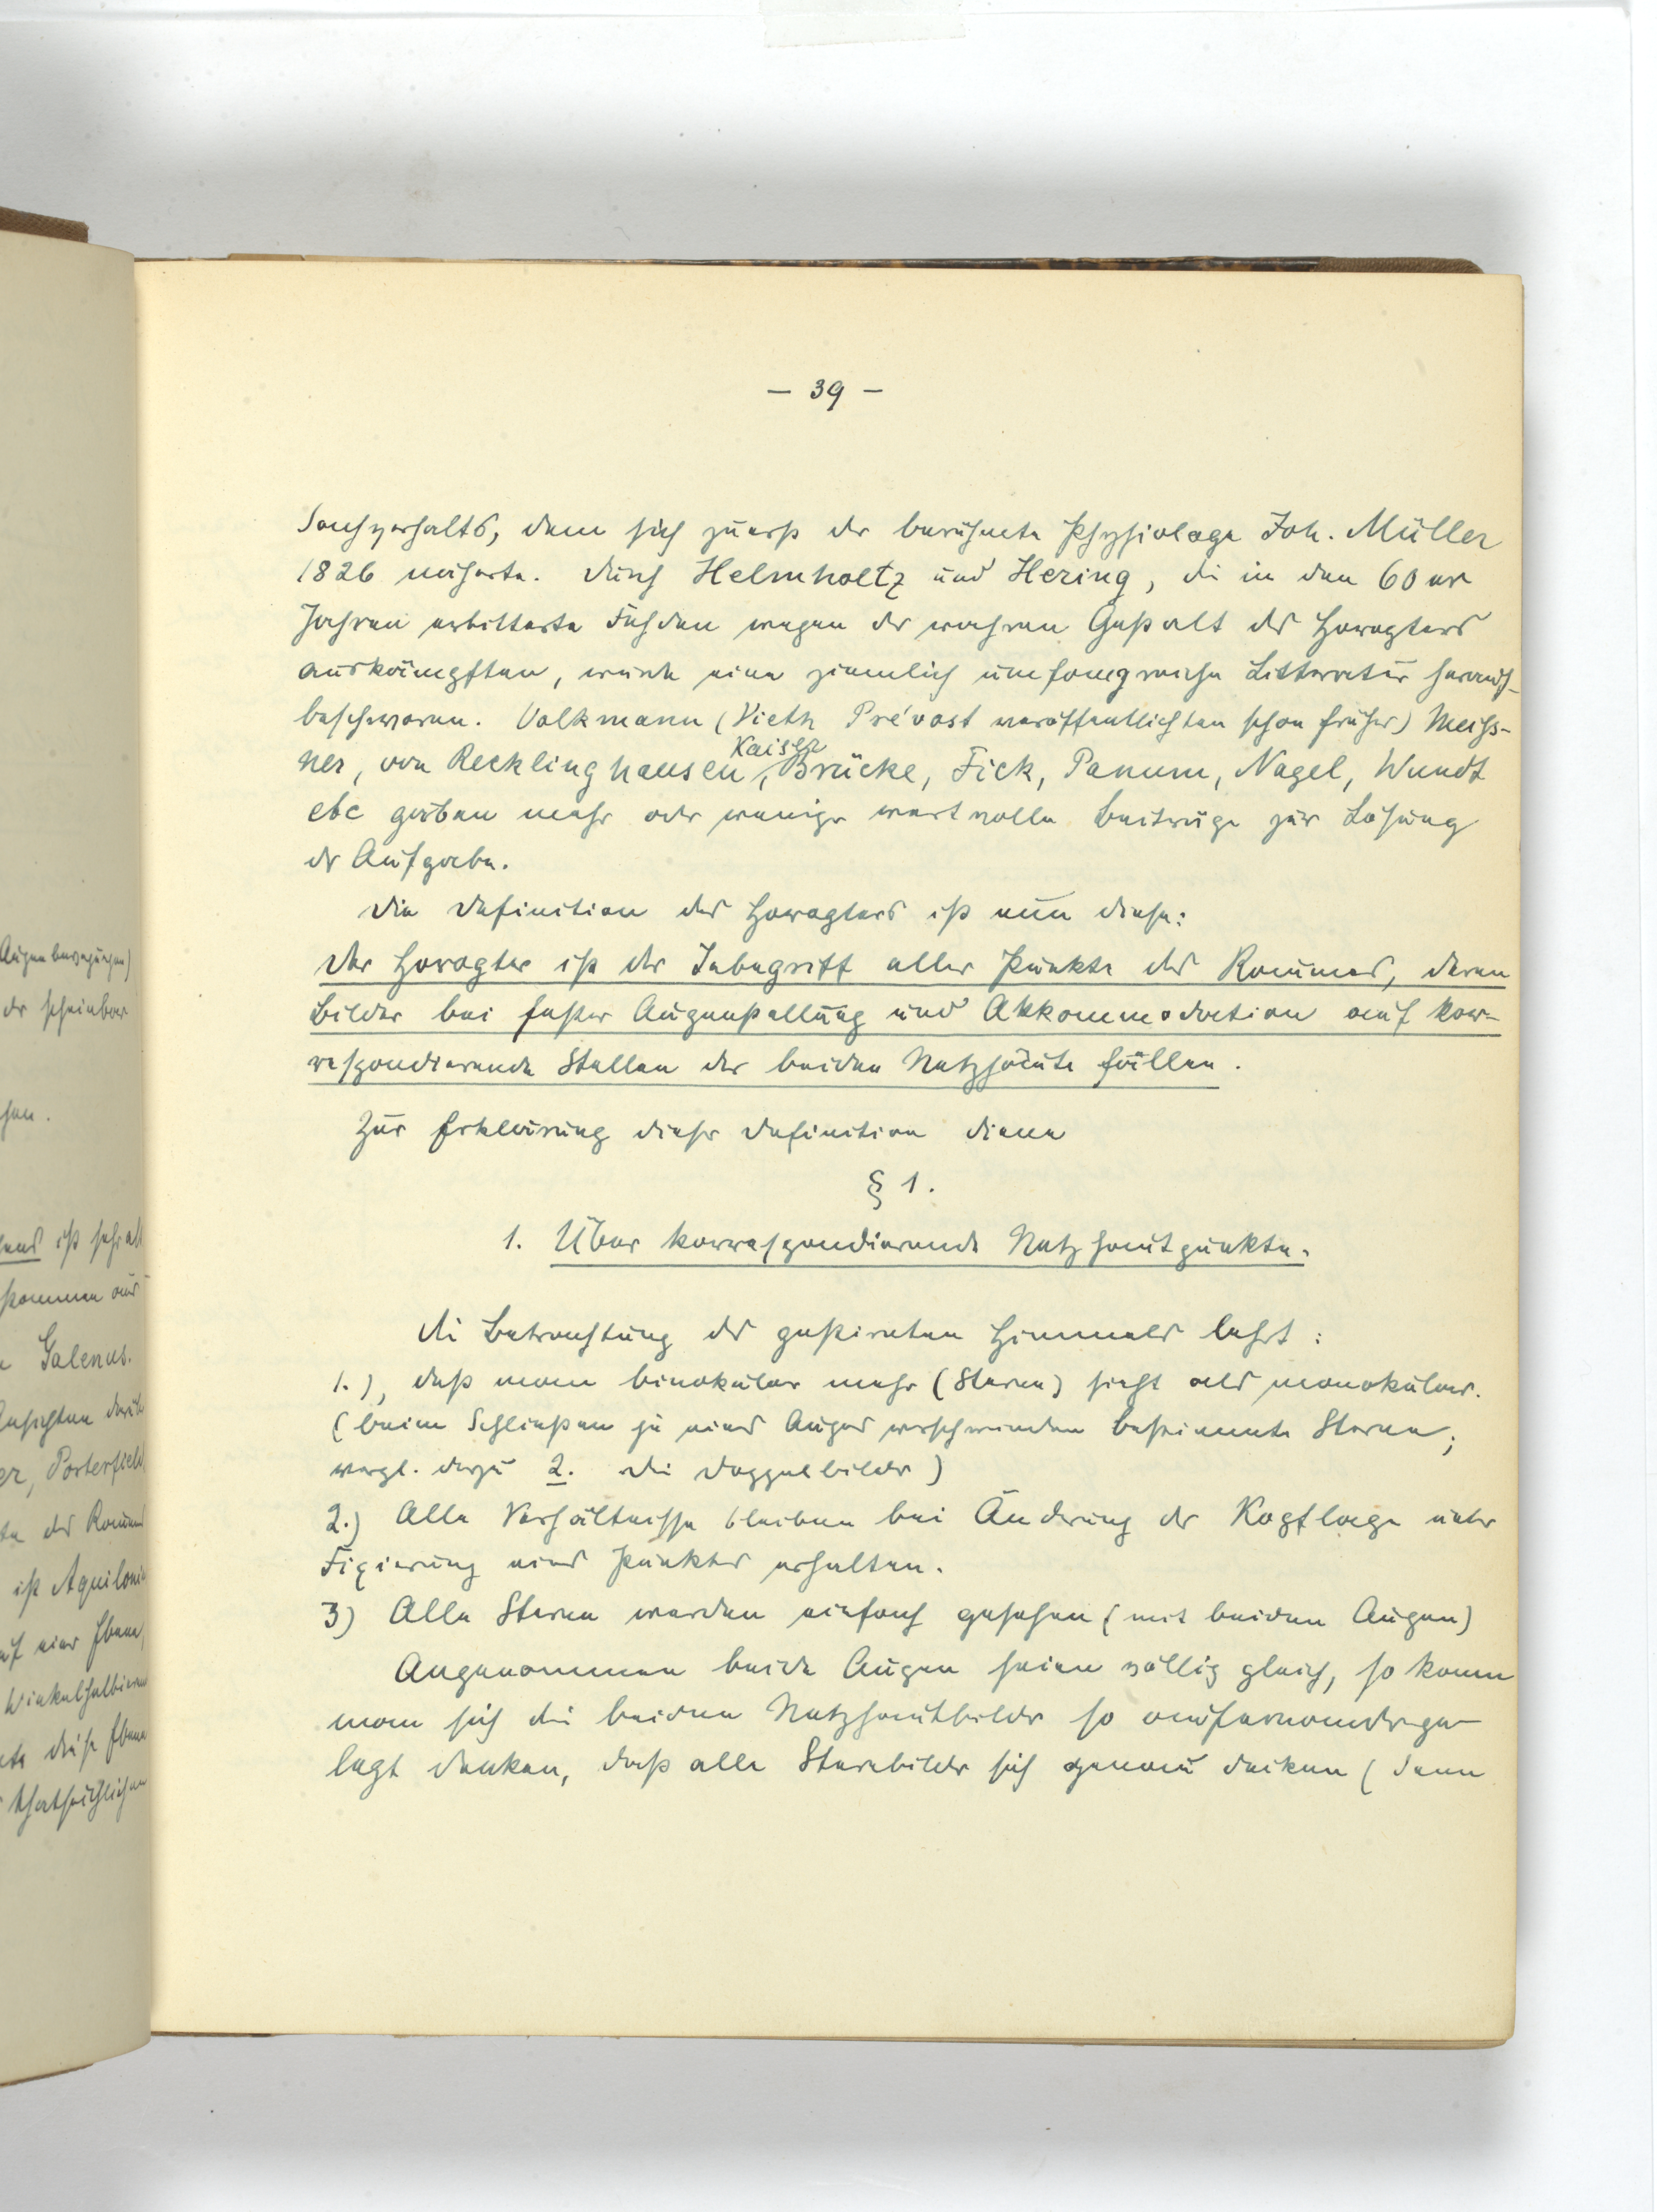 — 39 —
Sachverhalts, dem sich zuerst der berühmte Physiologe Joh. Müller
1826 näherte. Durch Helmholtz und Hering, die in den 60 er
Jahren erbitterte Fehden wegen der wahren Gestalt des Horopters
auskämpften, wurde eine ziemlich umfangreiche Litteratur herauf-
beschworen. Volkmann (Vieth Prévost veröffentlichten schon früher) Meiss-
Kaiser
ner, von Recklinghausen, Brücke, Fick, Panum, Nagel, Wundt
etc gaben mehr oder weniger wertvolle Beiträge zur Lösung
der Aufgabe.
Die Definition des Horopters ist nun diese:
Der Horopter ist der Inbegriff aller Punkte des Raumes, deren
Bilder bei fester Augenstellung und Akkommodation auf kor-
respondierende Stellen der beiden Netzhäute fallen.
Zur Erklärung dieser Definition diene
§ 1.
1. Über korrespondierende Netzhautpunkte.
Die Betrachtung des gestirnten Himmels lehrt:
1.), daß man binokular mehr (Sterne) sieht als monokular.
(beim Schließen je eines Auges verschwinden bestimmte Sterne;
vergl. dazu 2. Die Doppelbilder)
2.) Alle Verhältnisse bleiben bei Änderung der Kopflage unter
Fixierung eines Punktes erhalten.
3) Alle Sterne werden einfach gesehen (mit beiden Augen)
Angenommen beide Augen seien völlig gleich, so kann
man sich die beiden Netzhautbilder so aufeinander ge-
legt denken, daß alle Sternbilder sich genau decken (denn
Augenbewegungen)
der scheinbar
ist sehr alt
Galenus.
Ansichten
Porterfield
ist Aquilonius
auf einer Ebene,
diese Ebene
thatsächlichen